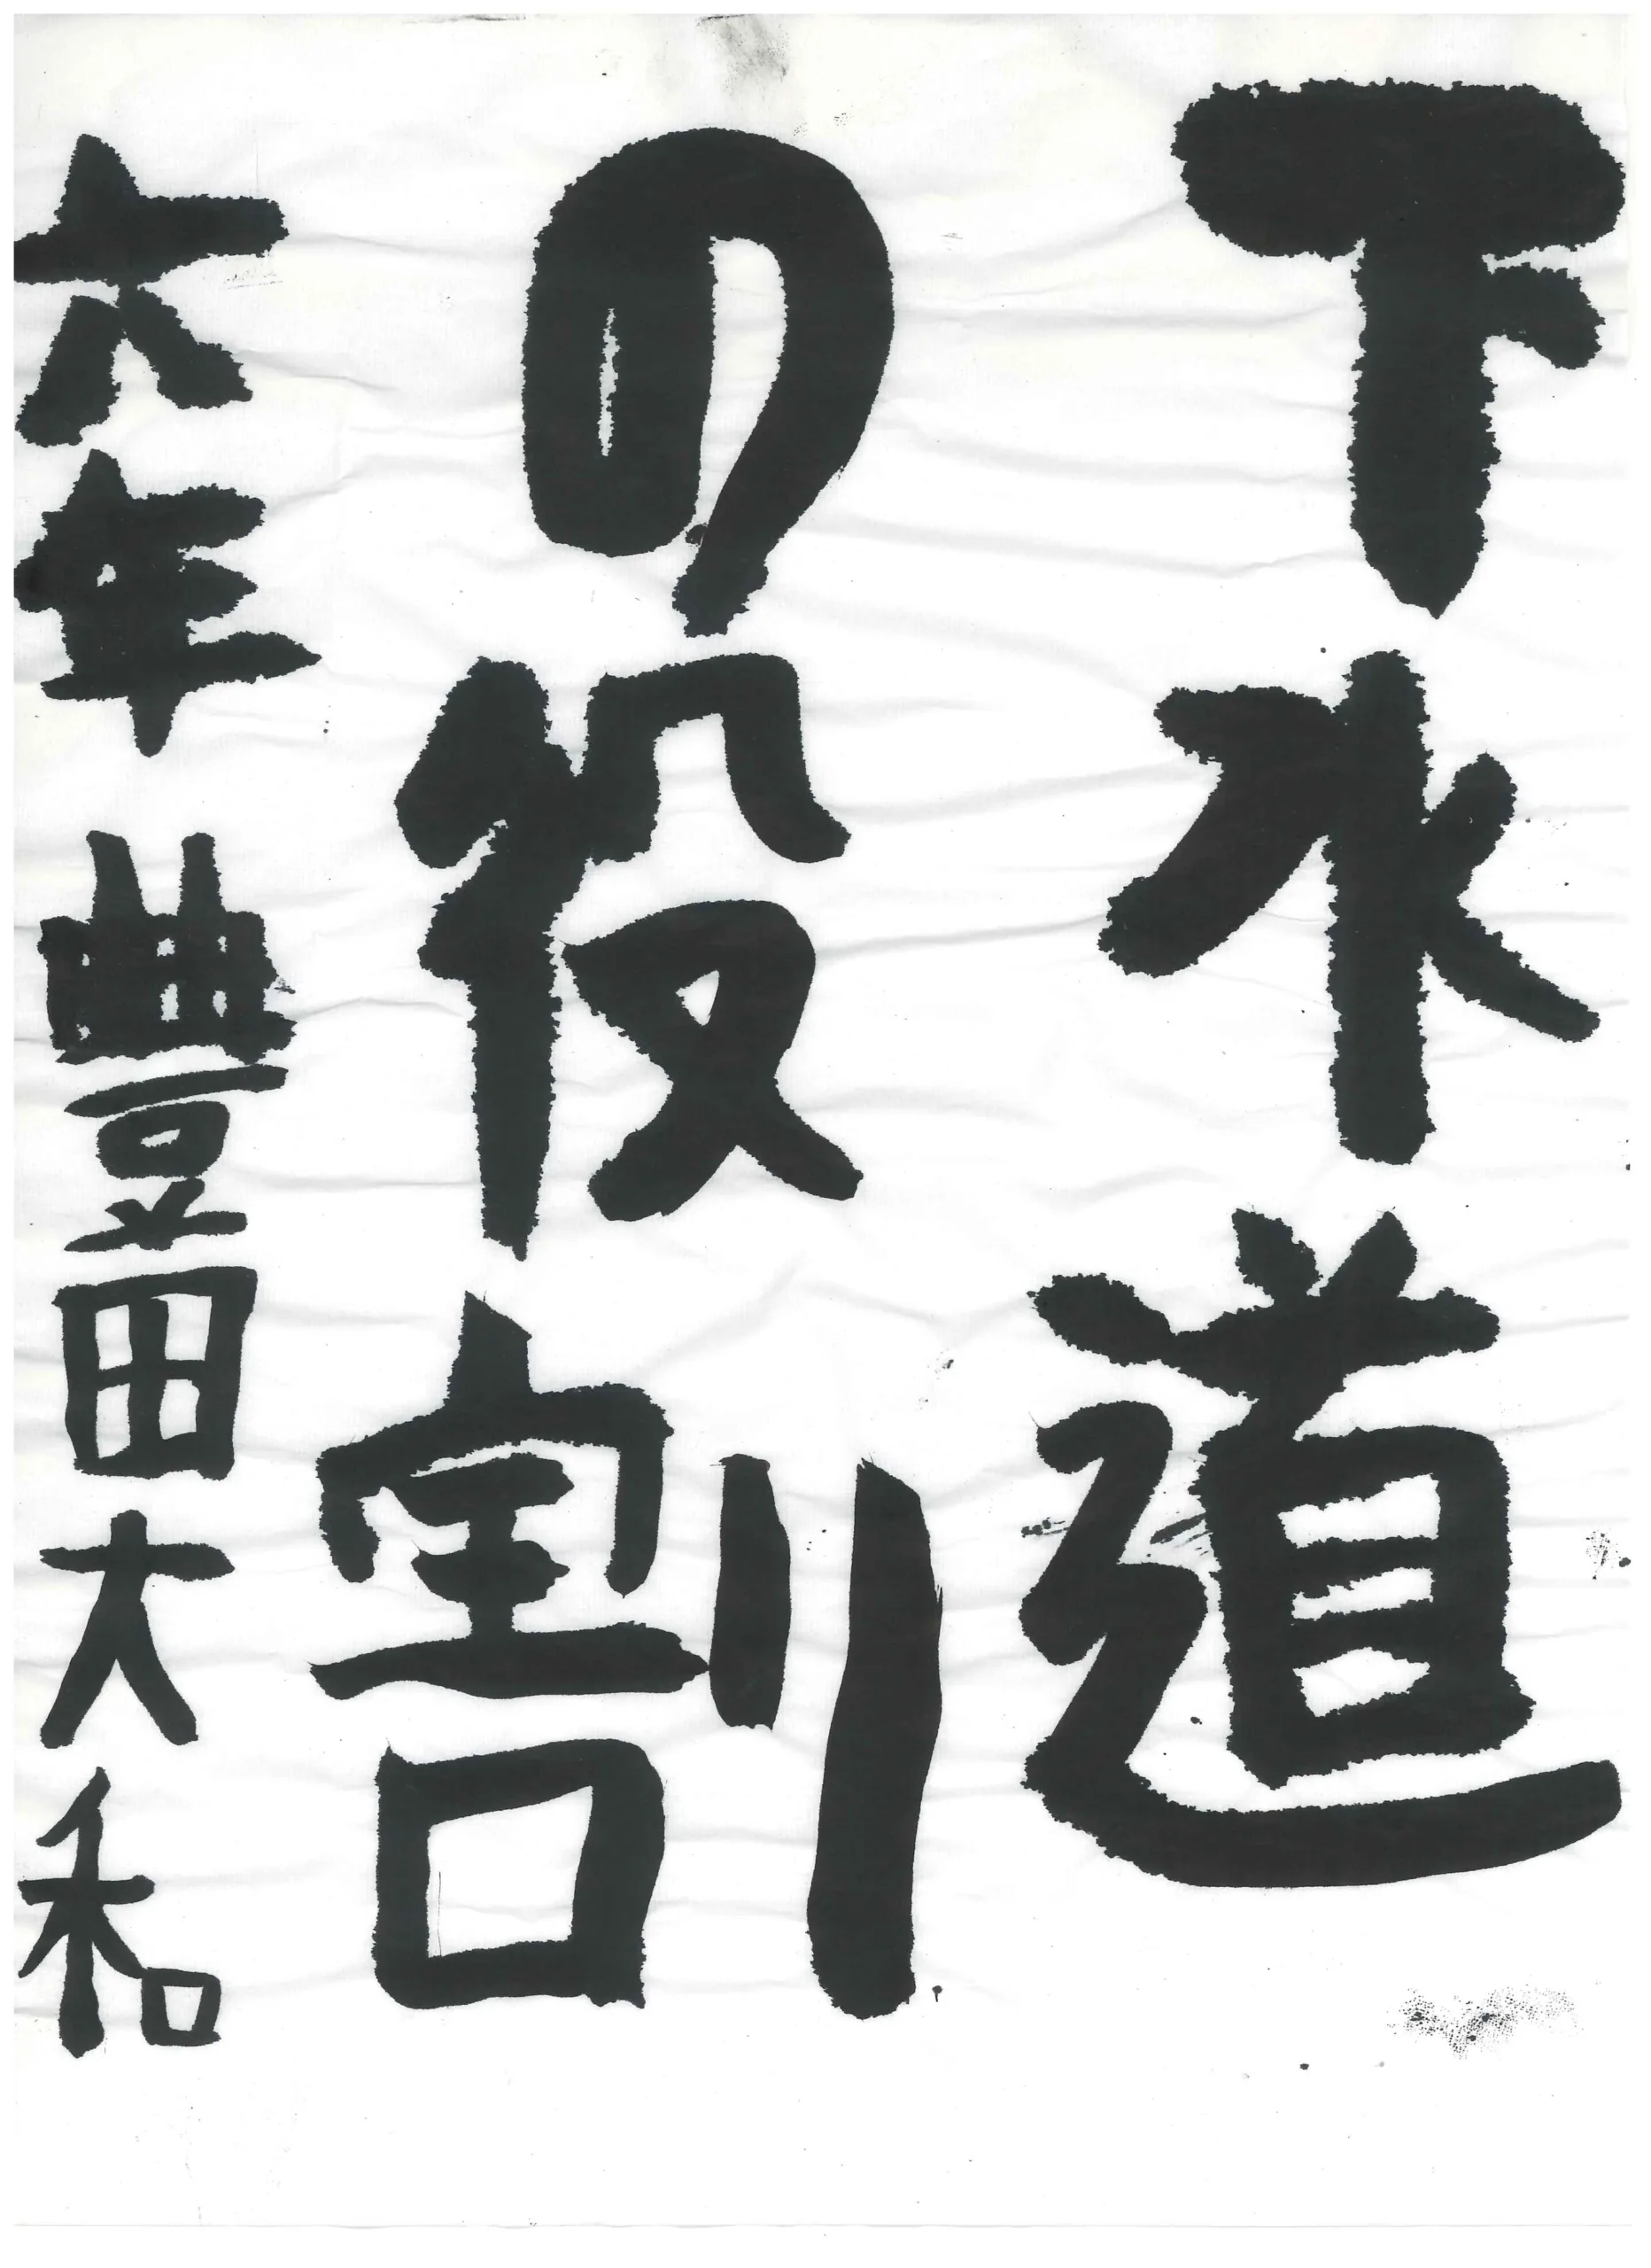 下水道
の役割
六年 豊田大和